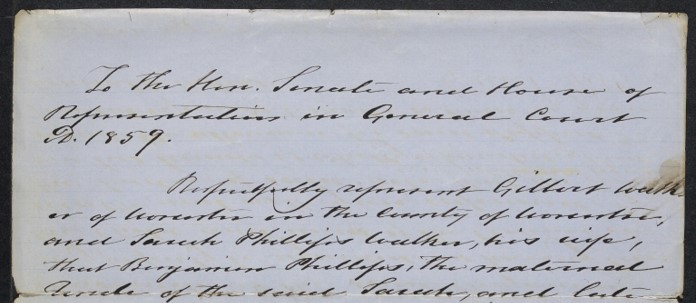 To the Hon. Senate and House of
Representatives in General Court
A. 1859.
Respectfully represent Gilbert Walk-
er of Worcester in the County of Worcester,
and Sarah Phillips Walker, his wife,
that Benjamin Phillips, the maternal
Uncle of the said Sarah, and late